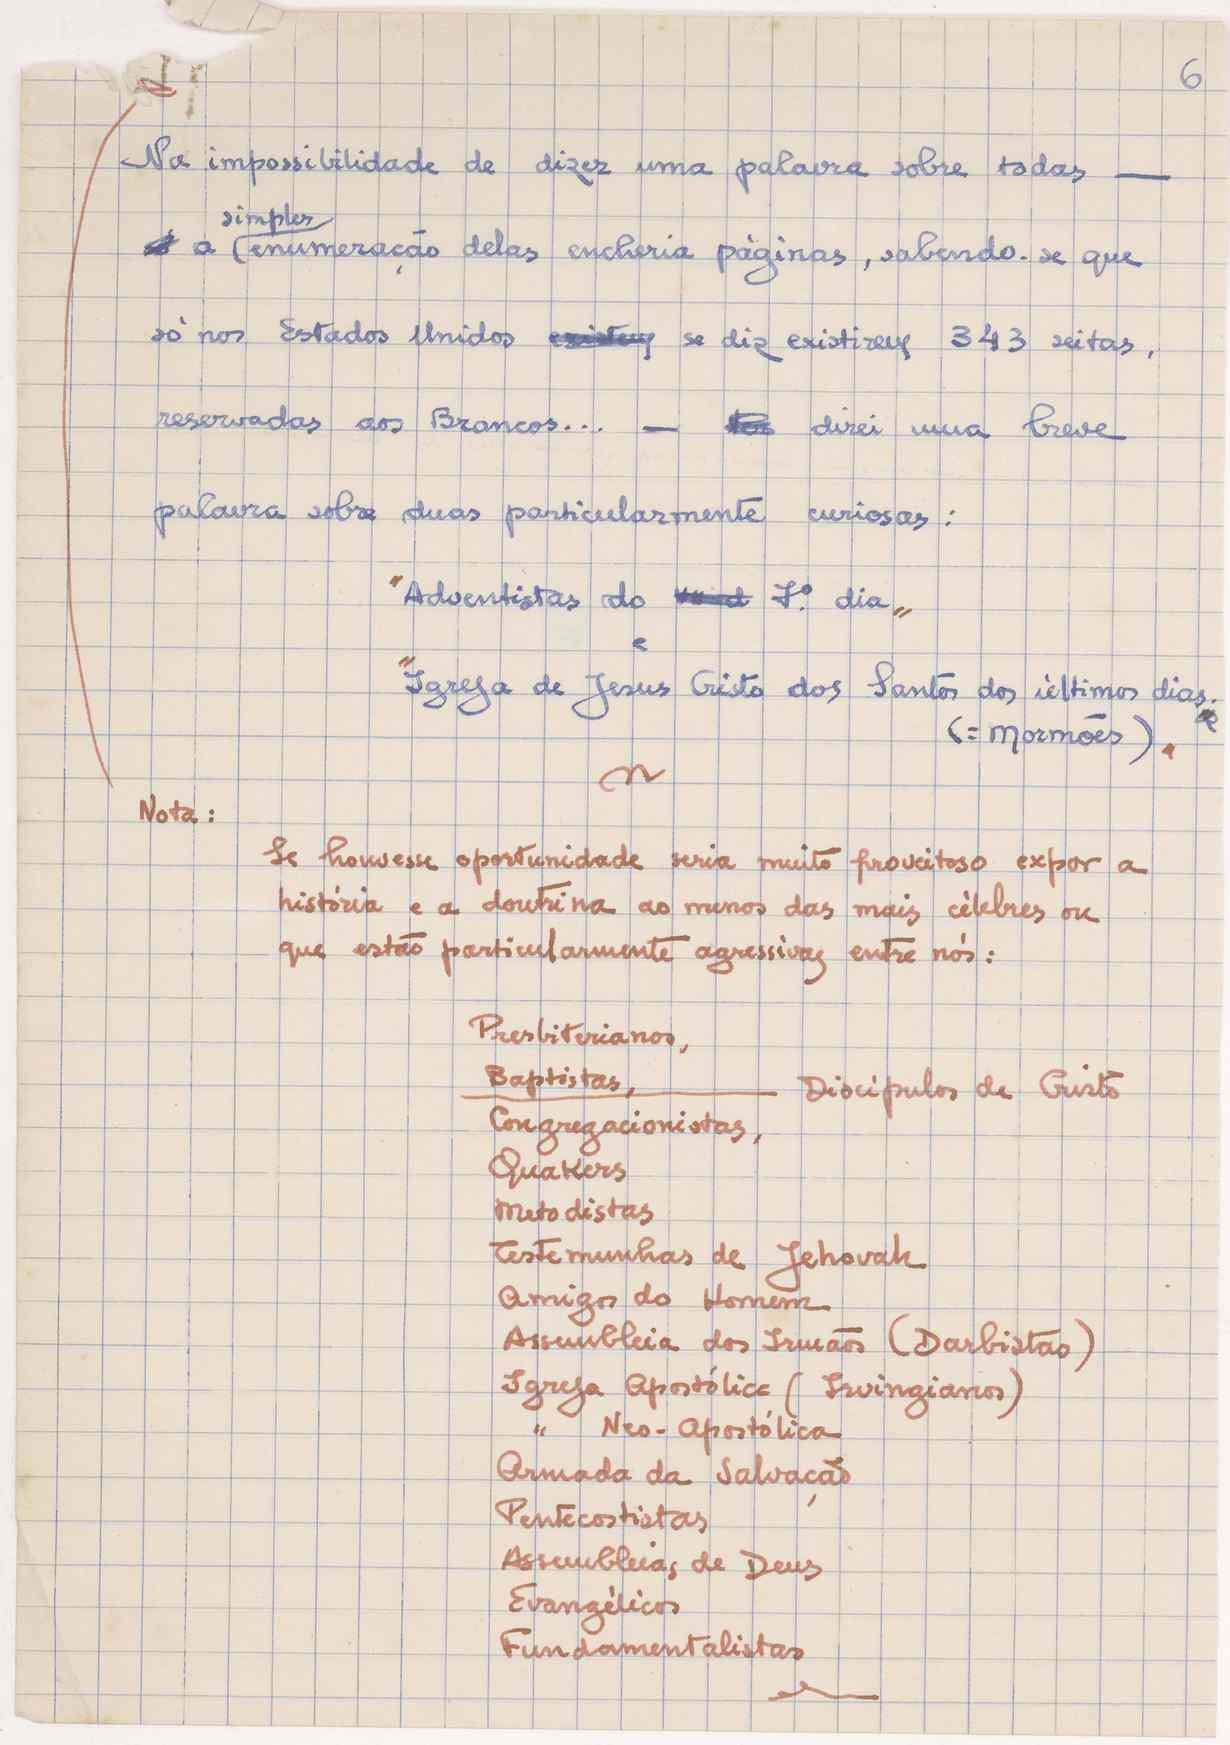 6
Na impossibilidade de dizer uma palavra sobre todas —
simples
a enumeração delas encheria páginas, sabendo-se que
só nos Estados Unidos existem se diz existirem 343 seitas,
reservadas aos Brancos... — direi uma breve
palavra sobre duas particularmente curiosas:
"Adventistas do 7.º dia"
e
"Igreja de Jesus Cristo dos Santos dos últimos dias"
(= Mormões).
Nota:
Se houvesse oportunidade seria muito proveitoso expor a
história e a doutrina ao menos das mais célebres ou
que estão particularmente agressivas entre nós:
Presbiterianos,
Baptistas, — Discípulos de Cristo
Congregacionistas,
Quakers
Metodistas
Testemunhas de Jehovah
Amigos do Homem
Assembleia dos Irmãos (Darbistas)
Igreja Apostólica (Irvingianos)
" Neo-Apostólica
Armada da Salvação
Pentecostistas
Assembleias de Deus
Evangélicos
Fundamentalistas